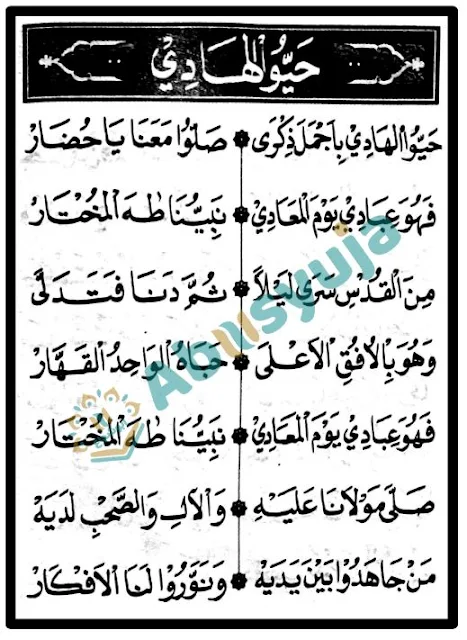 حَيُّوا الْهَادِيْ
حَيُّوا الْهَادِيْ بِاَجْمَلَ ذِكْرَى ۞ صَلُّوْا مَعَنَا يَا حُضَارْ
فَهُوَ عِبَادِيْ يَوْمَ الْمَعَادِيْ ۞ نَبِيُّنَا طٰهَ الْمُخْتَارْ
مِنَ الْقُدْسِ سَرَى لَيْلاً ۞ ثُمَّ دَنَا فَتَدَلَّى
وَهُوَ بِالْاُفُقِ الْاَعْلَى ۞ حَبَاهُ الْوَاحِدُ الْقَهَّارْ
فَهُوَ عِبَادِيْ يَوْمَ الْمَعَادِيْ ۞ نَبِيُّنَا طٰهَ الْمُخْتَارْ
صَلَّى مَوْلَانَا عَلَيْهِ ۞ وَالْاٰلِ وَالصَّحْبِ لَدَيْهْ
مَنْ جَاهَدُوْا بَيْنَ يَدَيْهْ ۞ وَنَوَّرُوْا لَنَا الْاَفْكَارْ
Abusyuja